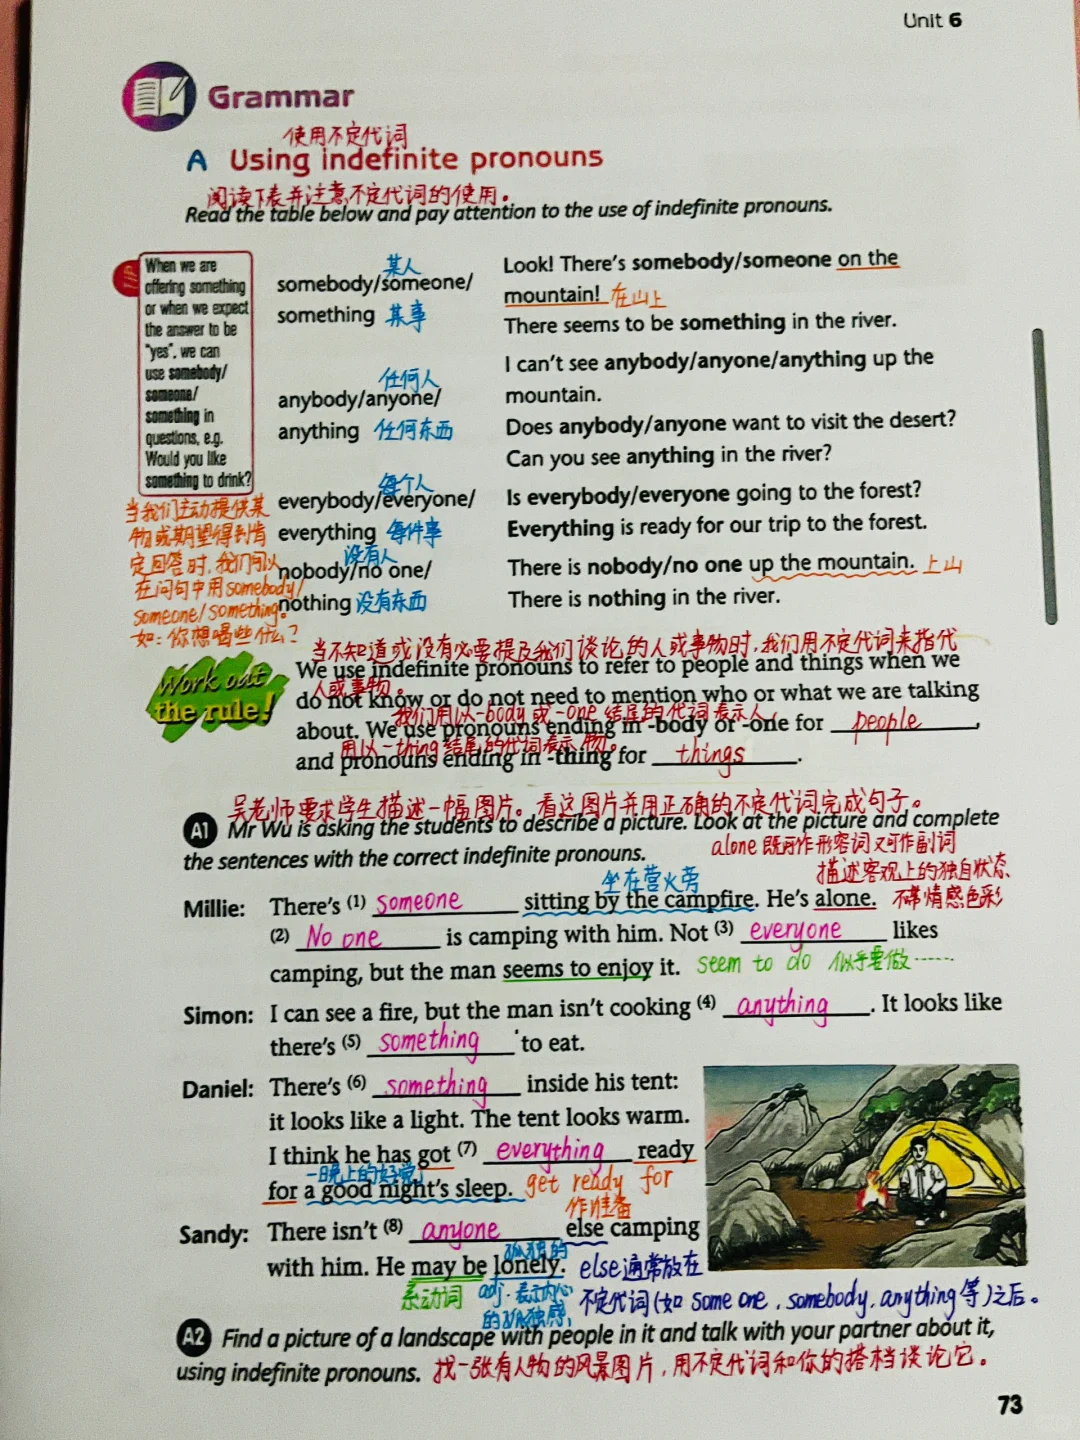 Unit 6
Grammar
使用不定代词
A Using indefinite pronouns
阅读下表并注意不定代词的使用。
Read the table below and pay attention to the use of indefinite pronouns.
When we are
offering something
or when we expect
the answer to be
"yes", we can
use somebody/
someone/
something in
questions, e.g.
Would you like
something to drink?
当我们主动提供某
物或期望得到肯
定回答时，我们可以
在问句中用somebody/
someone/something。
如：你想喝些什么？
某人
somebody/someone/
something 某事
Look! There's somebody/someone on the
mountain! 在山上
There seems to be something in the river.
任何人
anybody/anyone/
anything 任何东西
I can't see anybody/anyone/anything up the
mountain.
Does anybody/anyone want to visit the desert?
Can you see anything in the river?
每个人
everybody/everyone/
everything 每件事
Is everybody/everyone going to the forest?
Everything is ready for our trip to the forest.
没有人
nobody/no one/
nothing 没有东西
There is nobody/no one up the mountain. 上山
There is nothing in the river.
Work out
the rule!
当不知道或没有必要提及我们谈论的人或事物时，我们用不定代词来指代
We use indefinite pronouns to refer to people and things when we
人或事物。
do not know or do not need to mention who or what we are talking
我们用以-body或-one结尾的代词表示人，
about. We use pronouns ending in -body or -one for people,
用以-thing结尾的代词表示物。
and pronouns ending in -thing for things.
吴老师要求学生描述一幅图片。看这图片并用正确的不定代词完成句子。
A1 Mr Wu is asking the students to describe a picture. Look at the picture and complete
the sentences with the correct indefinite pronouns.
alone既可作形容词又可作副词
描述客观上的独自状态
不带情感色彩
坐在营火旁
Millie: There's (1) someone sitting by the campfire. He's alone.
(2) No one is camping with him. Not (3) everyone likes
camping, but the man seems to enjoy it. seem to do 似乎要做……
Simon: I can see a fire, but the man isn't cooking (4) anything. It looks like
there's (5) something to eat.
Daniel: There's (6) something inside his tent:
it looks like a light. The tent looks warm.
I think he has got (7) everything ready
一晚上的好觉
for a good night's sleep. get ready for
作准备
Sandy: There isn't (8) anyone else camping
孤独的
with him. He may be lonely. else通常放在
系动词 adj.表示内心
的孤独感，
不定代词(如 some one, somebody, anything等)之后。
A2 Find a picture of a landscape with people in it and talk with your partner about it,
using indefinite pronouns. 找一张有人物的风景图片，用不定代词和你的搭档谈论它。
73